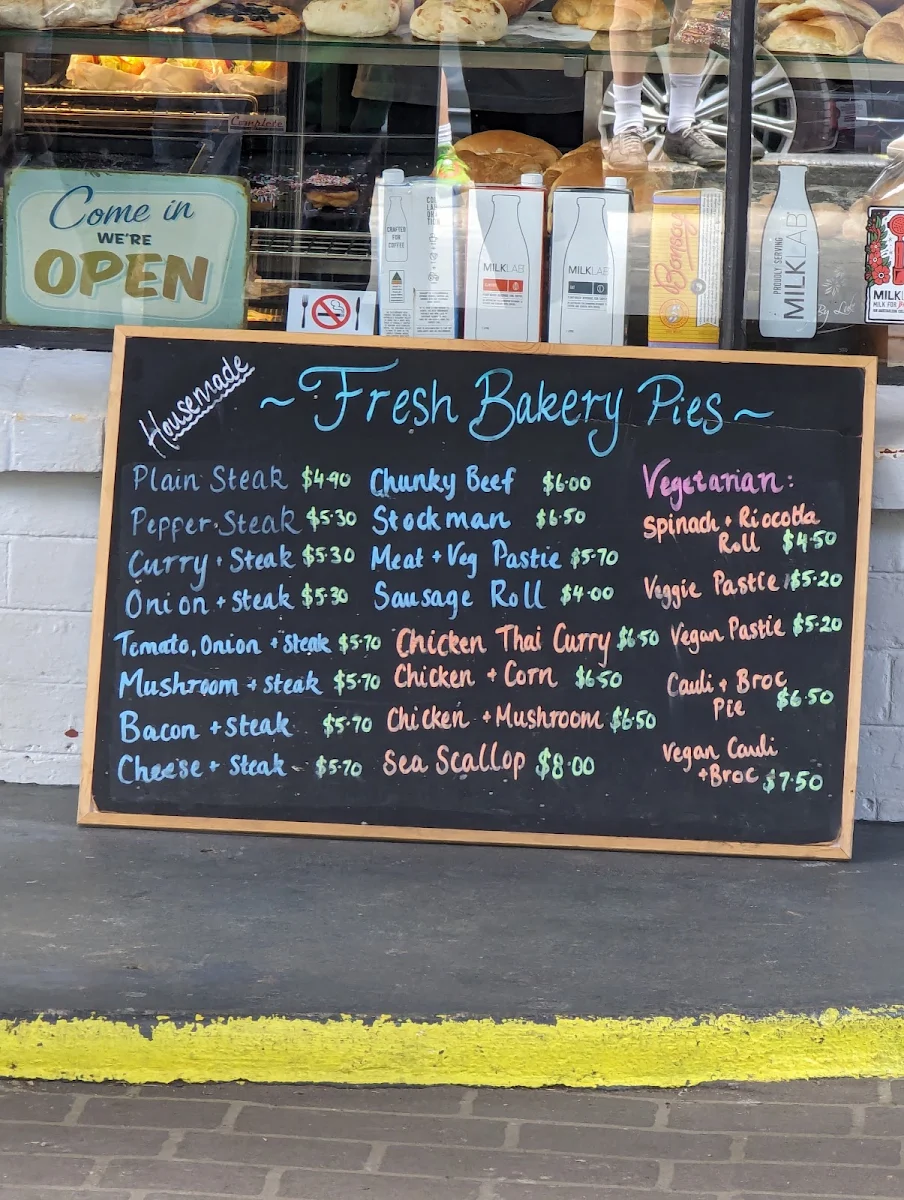 Complete
Come in
WE'RE
OPEN
CRAFTED
FOR
COFFEE
MILKLAB
MILKLAB
Bonsoy
PROUDLY SERVING
MILKLAB
MILK
Housemade
~ Fresh Bakery Pies ~
Plain Steak $4.90
Pepper Steak $5.30
Curry + Steak $5.30
Onion + Steak $5.30
Tomato, Onion + Steak $5.70
Mushroom + Steak $5.70
Bacon + Steak $5.70
Cheese + Steak $5.70
Chunky Beef $6.00
Stockman $6.50
Meat + Veg Pastie $5.70
Sausage Roll $4.00
Chicken Thai Curry $6.50
Chicken + Corn $6.50
Chicken + Mushroom $6.50
Sea Scallop $8.00
Vegetarian:
Spinach + Riocotta
Roll $4.50
Veggie Pastie $5.20
Vegan Pastie $5.20
Cauli + Broc
Pie $6.50
Vegan Cauli
+ Broc $7.50